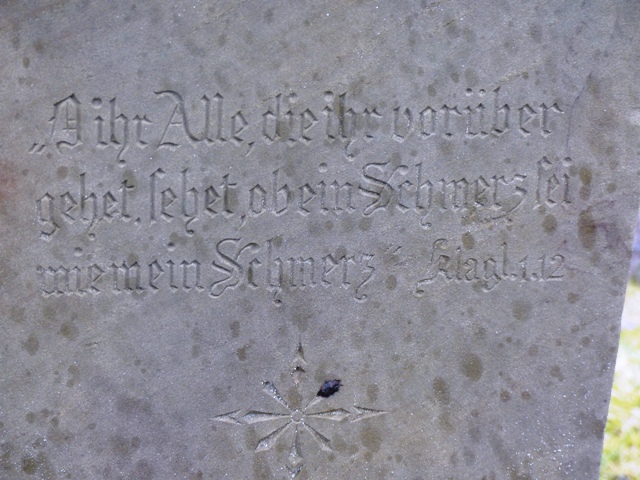 „O ihr Alle, die ihr vorüber
gehet, sehet, ob ein Schmerz sei
wie mein Schmerz“ Klagl. 1.12